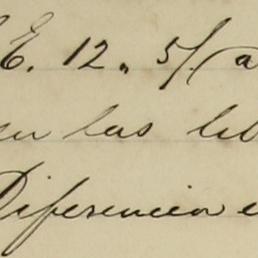 E. 12. 5/. a
en las lib
Diferencia e